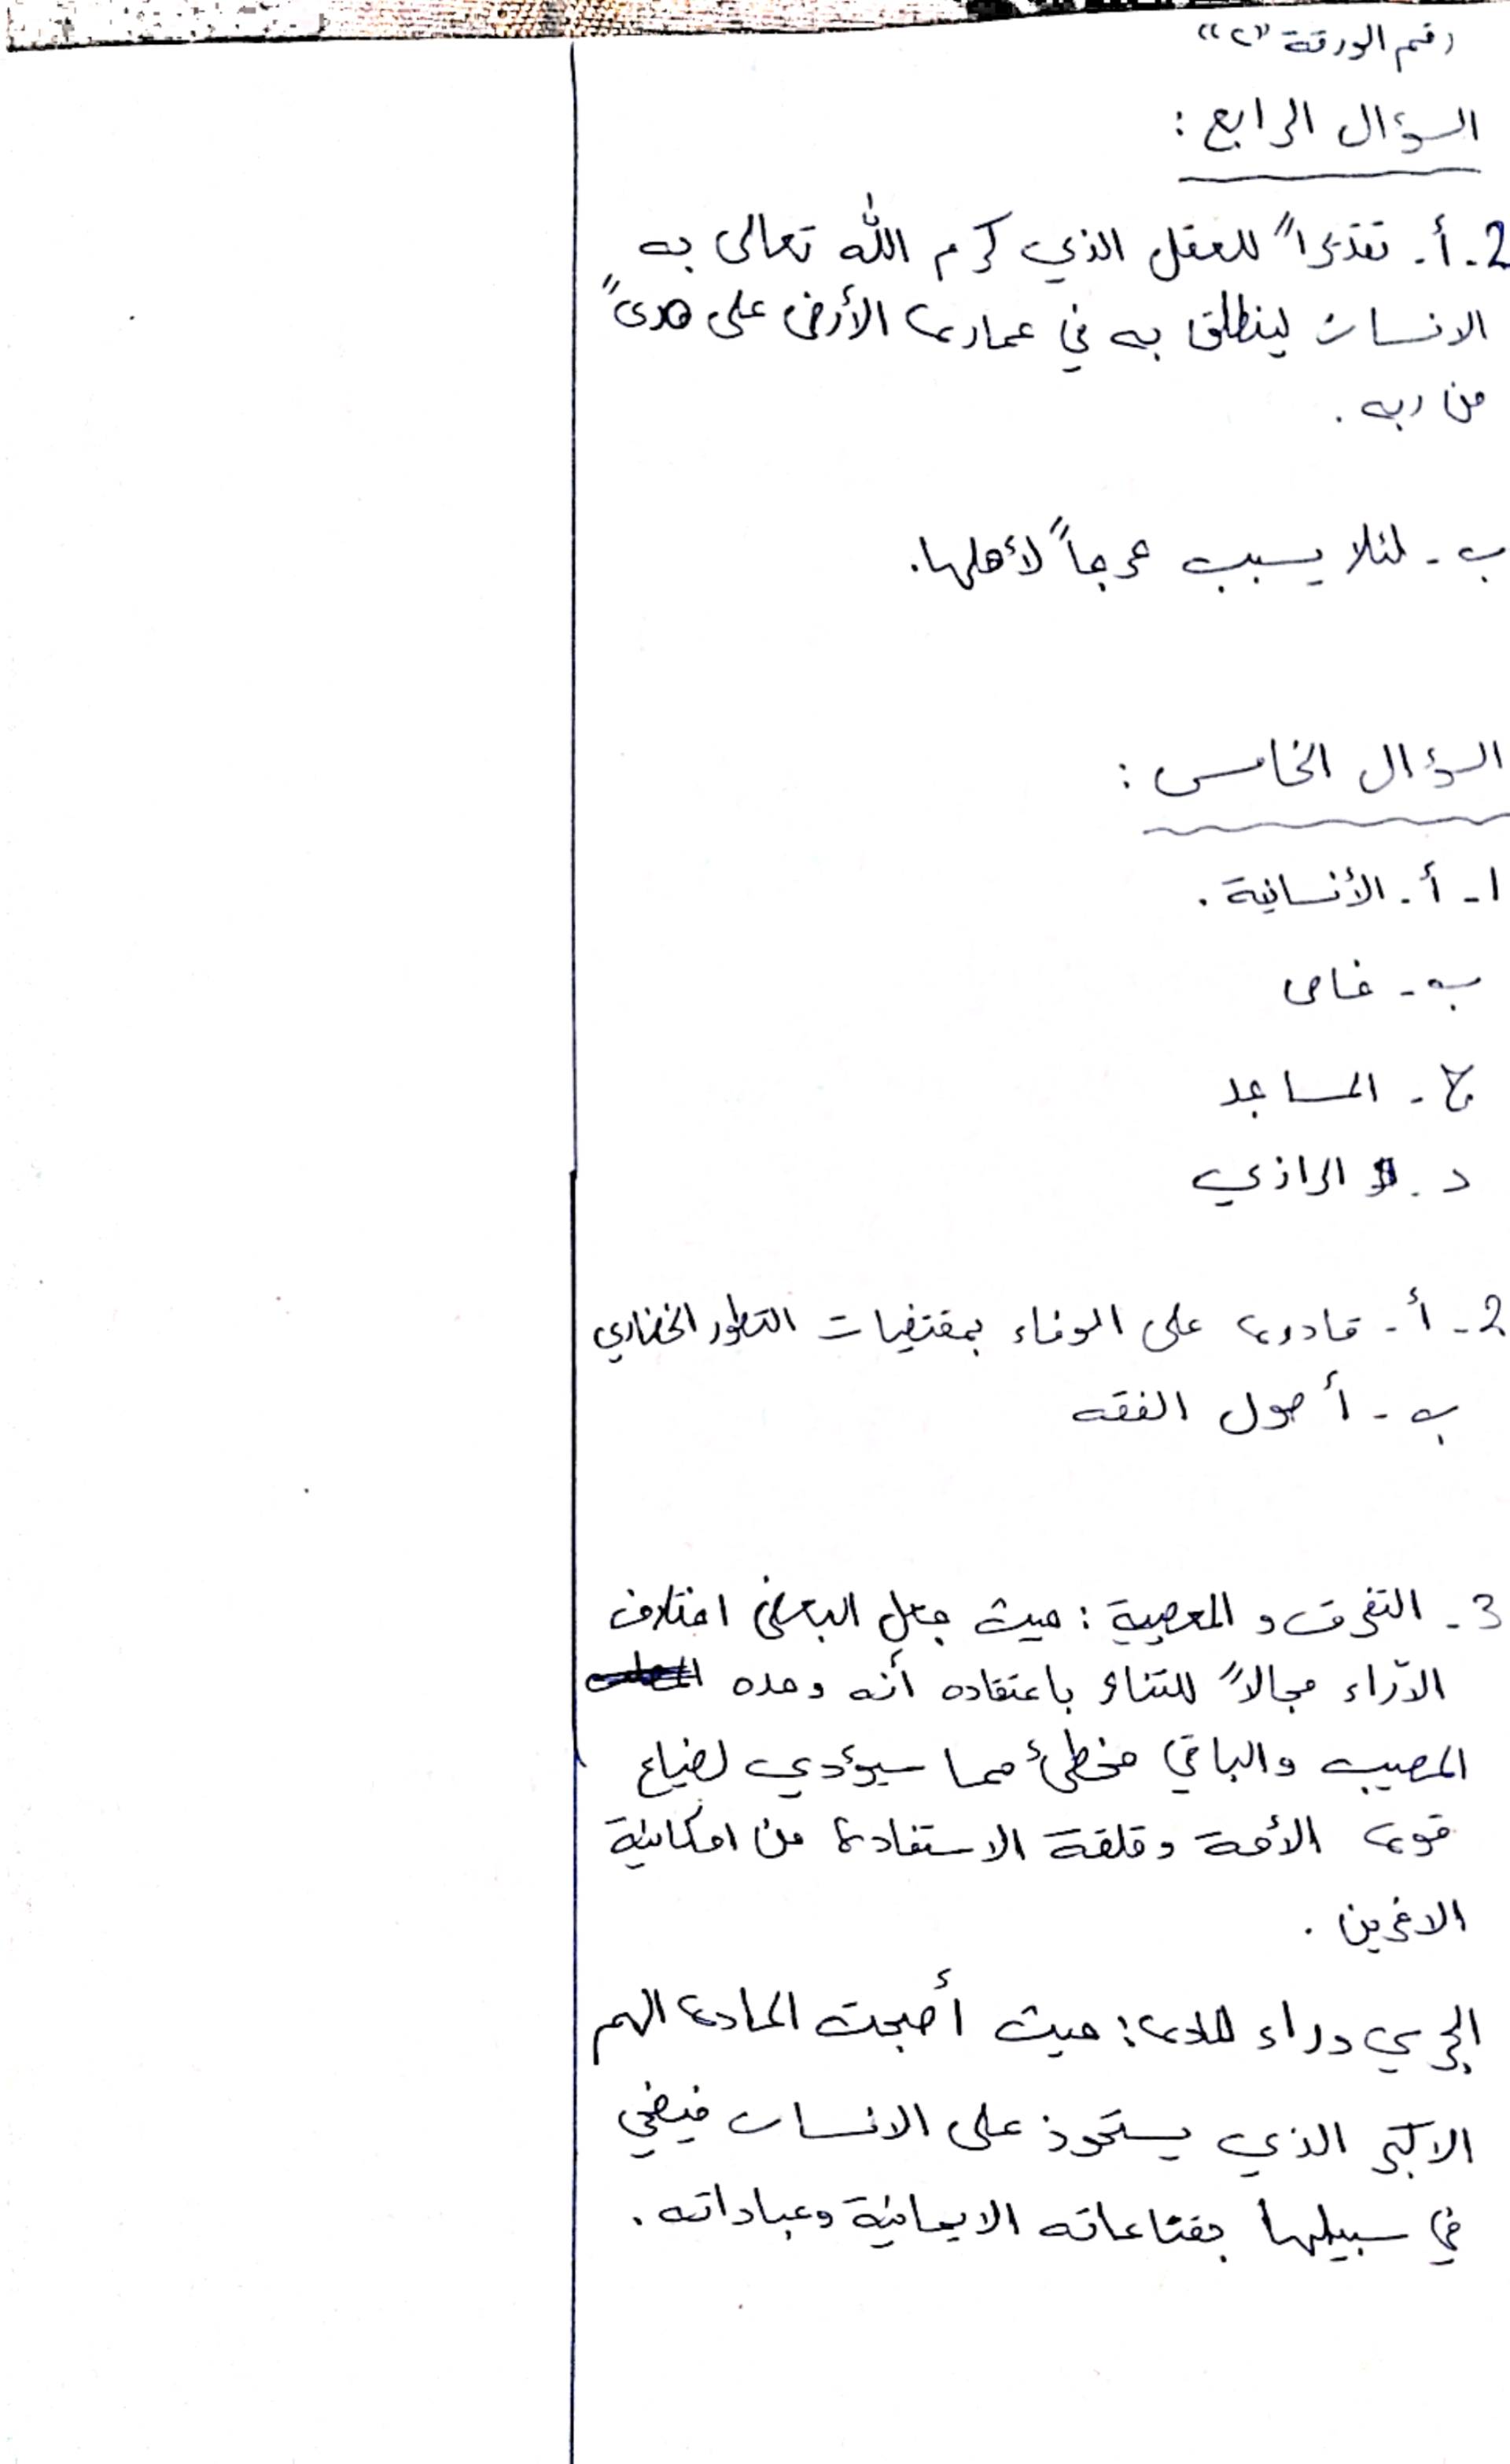 رقم الورقة "٢"
السؤال الرابع :
2. أ. تقديراً للعقل الذي كرم الله تعالى به
الانسان لينطلق به في عمارة الأرض على هدىً
من ربه .
ب - لئلا يسبب حرجاً لأهلها.
السؤال الخامس :
١ - أ. الأنسانية .
ب - خاص
ج - المساجد
د . الرازي
2 - أ - قادرة على الوفاء بمقتضيات التطور الحضاري
ب - أصول الفقه
3 - التفرق و العصبية : حيث جعل البعض اختلاف
الآراء مجالاً للتنافر باعتقاده أنه وحده
المصيب والباقي مخطئ مما سيؤدي لضياع
قوة الأمة وقلقة الاستفادة من امكانية
الاخرين .
الجري وراء المادة : حيث أصبحت المادة الهم
الاكبر الذي يستحوذ على الانسان فيضحي
في سبيلها بقناعاته الايمانية وعباداته .